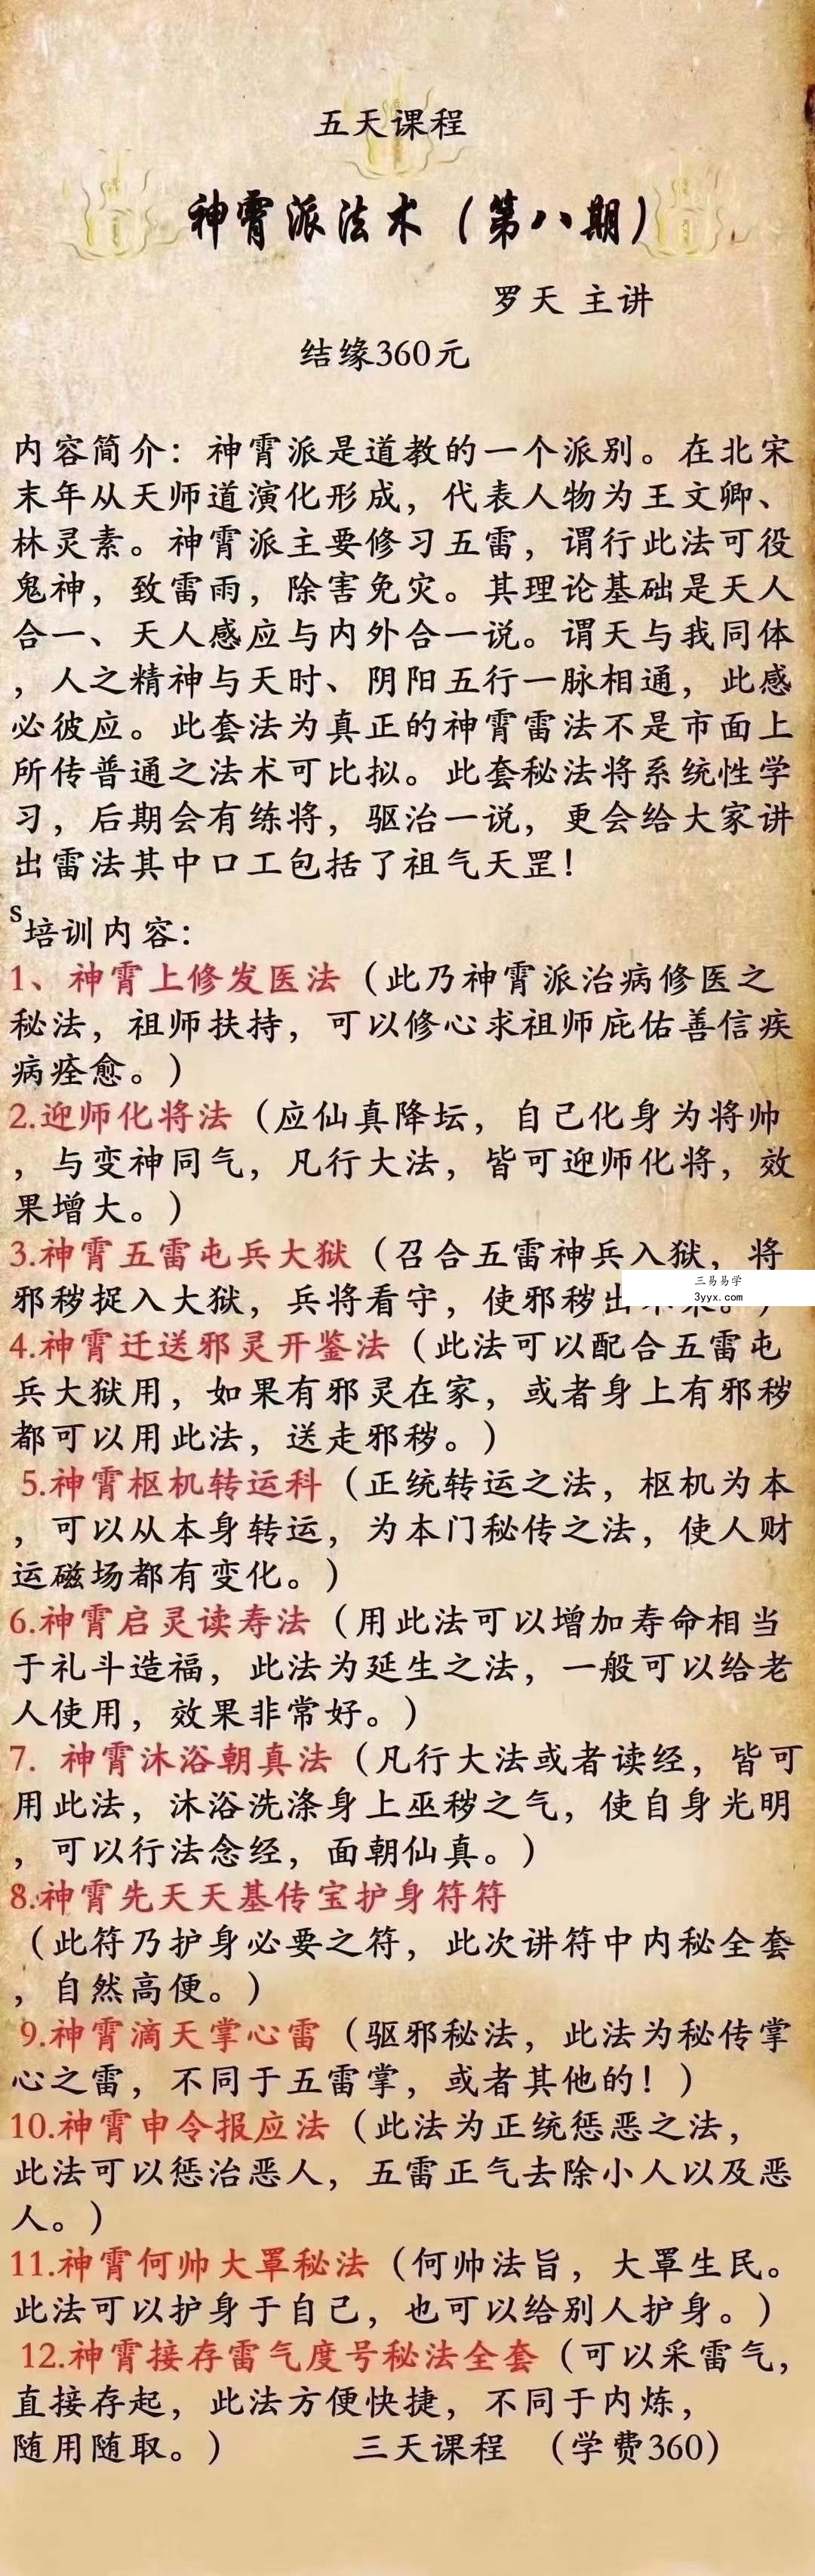 五天课程
神霄派法术（第八期）
罗天 主讲
结缘360元
内容简介：神霄派是道教的一个派别。在北宋
末年从天师道演化形成，代表人物为王文卿、
林灵素。神霄派主要修习五雷，谓行此法可役
鬼神，致雷雨，除害免灾。其理论基础是天人
合一、天人感应与内外合一说。谓天与我同体
，人之精神与天时、阴阳五行一脉相通，此感
必彼应。此套法为真正的神霄雷法不是市面上
所传普通之法术可比拟。此套秘法将系统性学
习，后期会有练将，驱治一说，更会给大家讲
出雷法其中口工包括了祖气天罡！
s培训内容：
1、神霄上修发医法（此乃神霄派治病修医之
秘法，祖师扶持，可以修心求祖师庇佑善信疾
病痊愈。）
2.迎师化将法（应仙真降坛，自己化身为将帅
，与变神同气，凡行大法，皆可迎师化将，效
果增大。）
3.神霄五雷屯兵大狱（召合五雷神兵入狱，将
邪秽捉入大狱，兵将看守，使邪秽出
三易易学
3yyx.com
4.神霄迁送邪灵开鉴法（此法可以配合五雷屯
兵大狱用，如果有邪灵在家，或者身上有邪秽
都可以用此法，送走邪秽。）
5.神霄枢机转运科（正统转运之法，枢机为本
，可以从本身转运，为本门秘传之法，使人财
运磁场都有变化。）
6.神霄启灵读寿法（用此法可以增加寿命相当
于礼斗造福，此法为延生之法，一般可以给老
人使用，效果非常好。）
7. 神霄沐浴朝真法（凡行大法或者读经，皆可
用此法，沐浴洗涤身上巫秽之气，使自身光明
，可以行法念经，面朝仙真。）
8.神霄先天天基传宝护身符符
（此符乃护身必要之符，此次讲符中内秘全套
，自然高便。）
9.神霄滴天掌心雷（驱邪秘法，此法为秘传掌
心之雷，不同于五雷掌，或者其他的！）
10.神霄申令报应法（此法为正统惩恶之法，
此法可以惩治恶人，五雷正气去除小人以及恶
人。）
11.神霄何帅大罩秘法（何帅法旨，大罩生民。
此法可以护身于自己，也可以给别人护身。）
12.神霄接存雷气度号秘法全套（可以采雷气，
直接存起，此法方便快捷，不同于内炼，
随用随取。） 三天课程 （学费360）